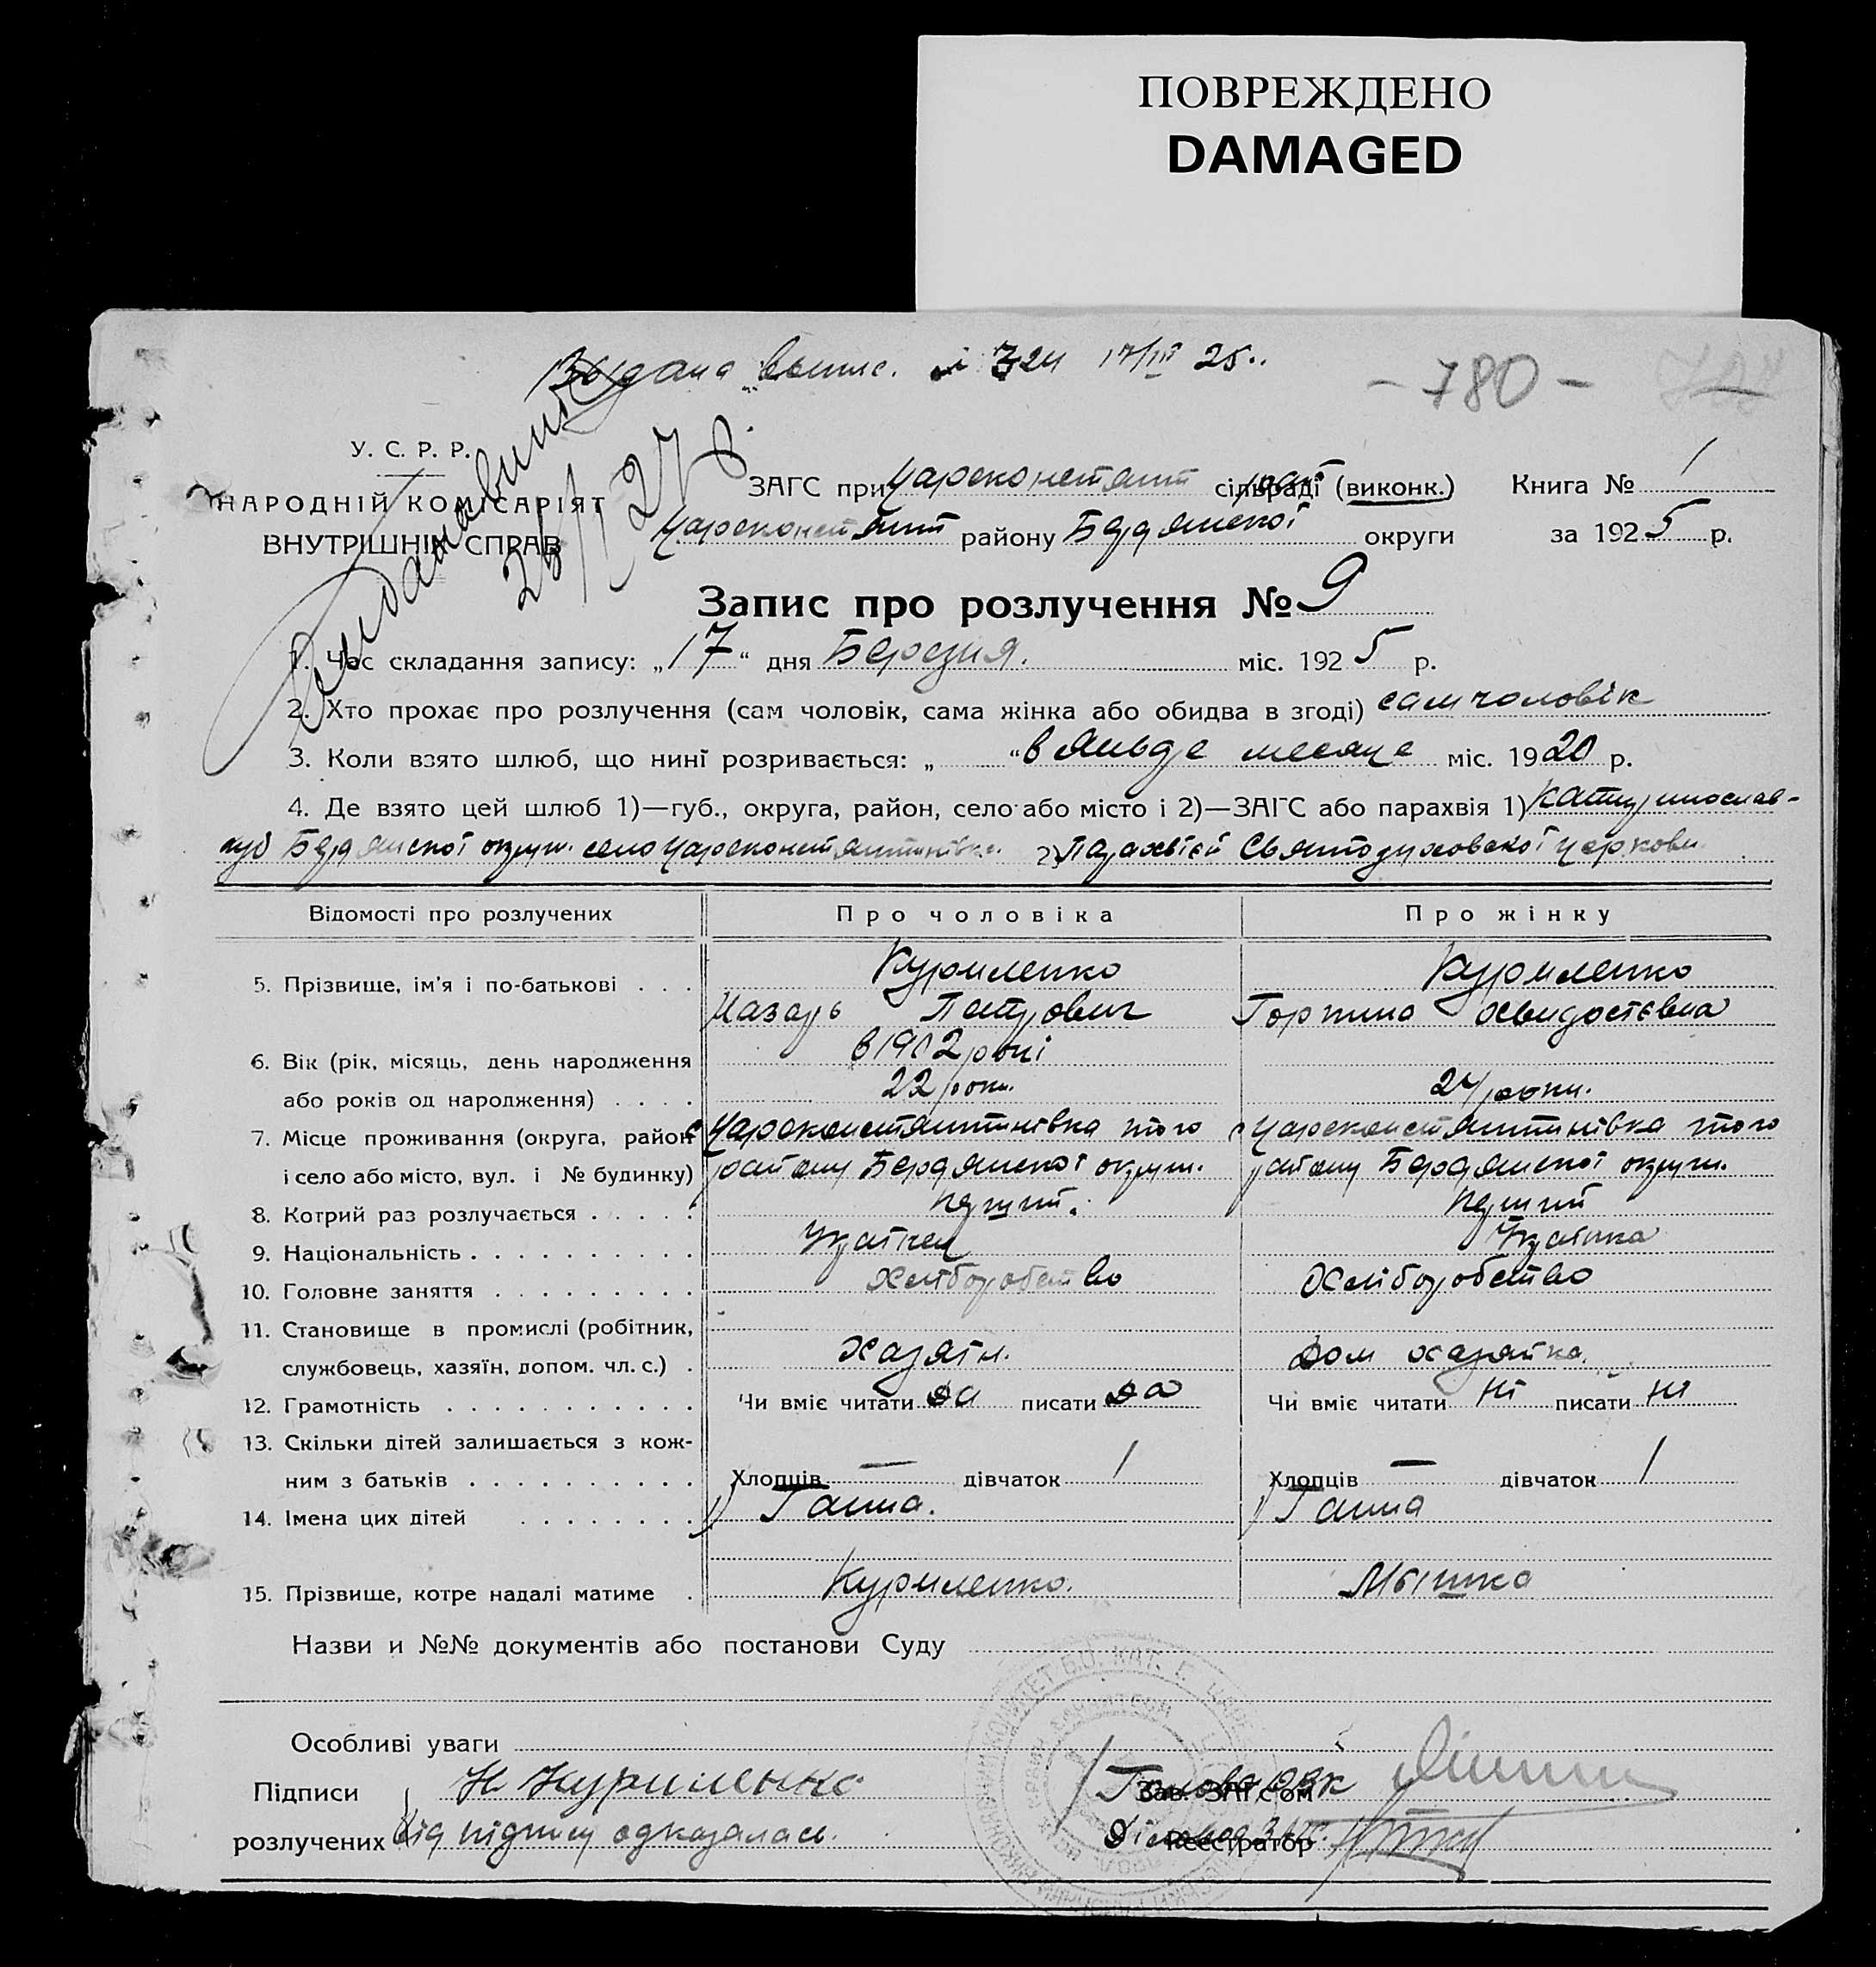 ПОВРЕЖДЕНО
DAMAGED
Выдана выпис. 17/III 25..
- 780 -
У. С. Р. Р.
НАРОДНІЙ КОМІСАРІЯТ
ВНУТРІШНІХ СПРАВ
26/I 27 р.
ЗАГС при Цареконстянт сільраді (виконк.) Книга № 1
Цареконстянт району Бердянської округи за 1925 р.
Запис про розлучення № 9
1. Час складання запису: „17“ дня Березня. міс. 1925 р.
2. Хто прохає про розлучення (сам чоловік, сама жінка або обидва в згоді) сам чоловік
3. Коли взято шлюб, що нинї розривається: „ “ в месяце міс. 1920 р.
4. Де взято цей шлюб 1)—губ., округа, район, село або місто і 2)—ЗАГС або парахвія 1) Катеринослав-
губ Бердянскої округи село Цареконстянтинівка 2) Парахвієй Святодуховскої церкови
Відомості про розлучених Про чоловіка Про жінку
5. Прізвище, ім’я і по-батькові . . . Куриленко Куриленко
Назарь Петрович Горпина
6. Вік (рік, місяць, день народження в 1902 році
або років од народження) . . . . 22 роки. 24 роки.
7. Місце проживання (округа, район с Цареконстянтинівка того с Цареконстянтинівка того
і село або місто, вул. і № будинку) району Бердянскої округи. району Бердянскої округи.
8. Котрий раз розлучається . . . . . перший. перший
9. Національність . . . . . . . . . . Українец Українка
10. Головне заняття . . . . . . . . . Хліборобство Хліборобство
11. Становище в промислі (робітник,
службовець, хазяїн, допом. чл. с.) . Хазяїн. Дом хазяйка.
12. Грамотність . . . . . . . . . . . Чи вміє читати да писати да Чи вміє читати ні писати ні
13. Скільки дітей залишається з кож-
ним з батьків . . . . . . . . . . Хлопців — дівчаток 1 Хлопців — дівчаток 1
14. Імена цих дітей . . . . . . . . 1) Ганна. 1) Ганна
15. Прізвище, котре надалі матиме . Куриленко. Мышко
Назви и №№ документів або постанови Суду
Особливі уваги
Підписи Н Куриленко Голова РВК Зав. ЗАГС'ом
розлучених Від підпису одказалась. Реєстратор